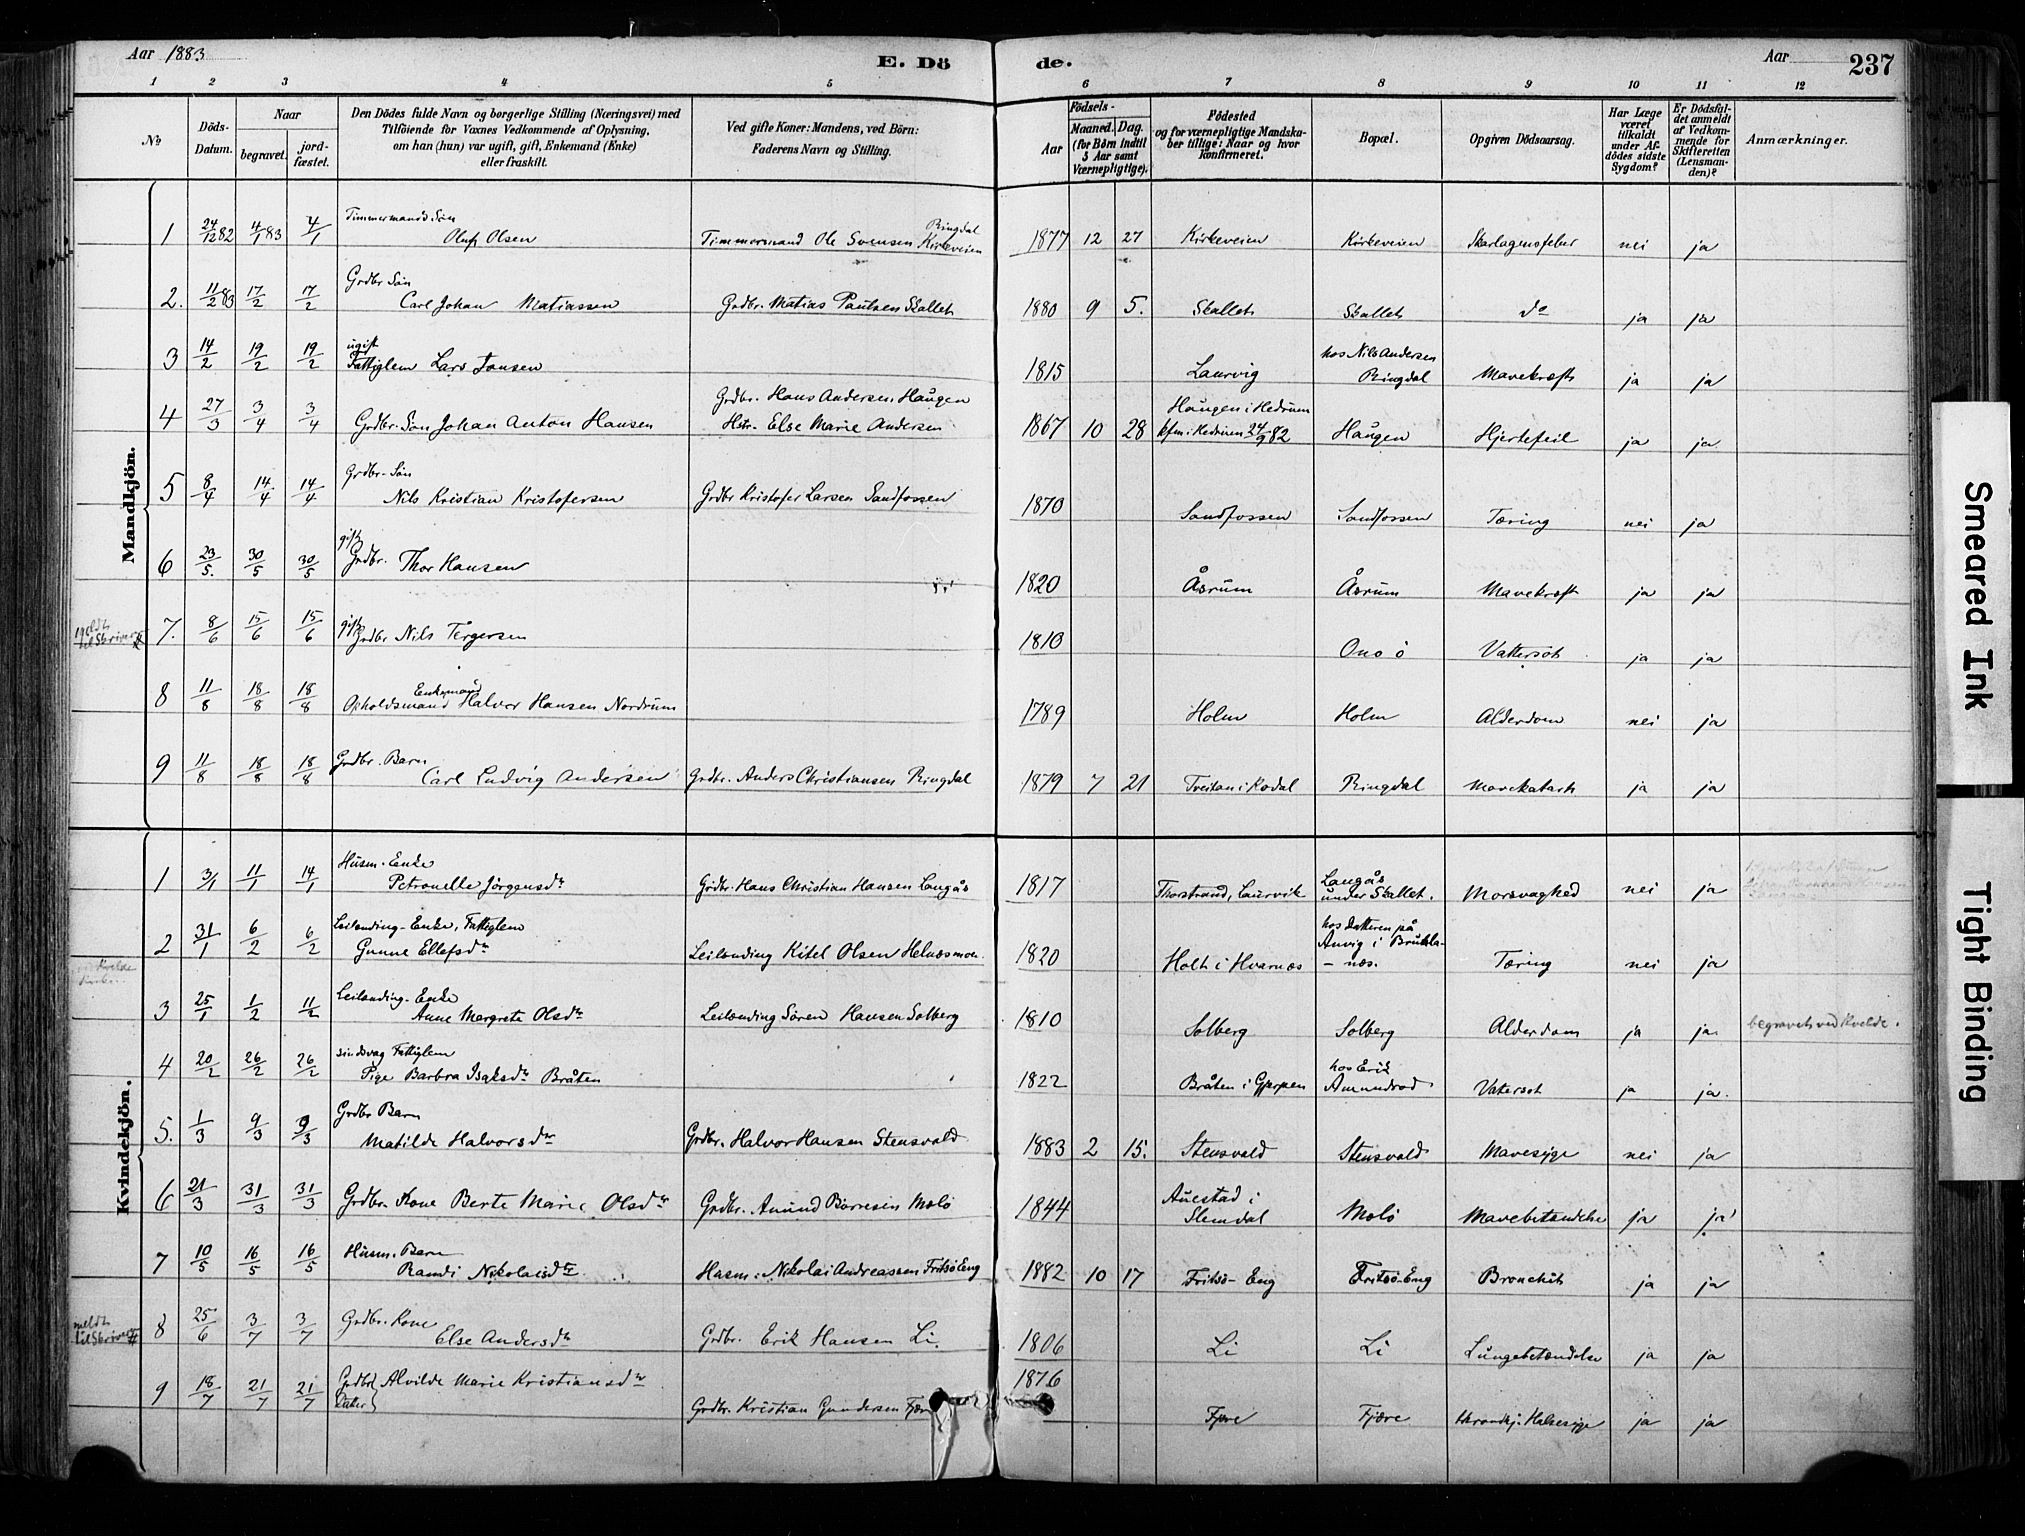 Aar 1883
E. Dö
de.
Aar
237
1 2 3 4 5 6 7 8 9 10 11 12
No
Döds-Datum.
Naar
begravet.
jordfæstet.
Den Dödes fulde Navn og borgerlige Stilling (Næringsvei) med
Tilföiende for Voxnes Vedkommende af Oplysning,
om han (hun) var ugift, gift, Enkemand (Enke)
eller fraskilt.
Ved gifte Koner: Mandens, ved Börn:
Faderens Navn og Stilling.
Födsels-
Aar
Maaned. Dag.
(for Börn indtil
5 Aar samt
Værnepligtige).
Födested
og for værnepligtige Mandskaber tillige: Naar og hvor
konfirmeret.
Bopæl.
Opgiven Dödsaarsag.
Har Læge
været
tilkaldt
under Afdödes sidste
Sygdom?
Er Dödsfaldet anmeldt
af Vedkommende for
Skifteretten
(Lensmanden)?
Anmærkninger.
Mandkjön.
1 24/12 82 4/1 83 4/1 Timmermands Søn Oluf Olsen Timmermand Ole Svensen Ringdal Kirkeveien 1877 12 27 Kirkeveien Kirkeveien Skarlagensfeber nei ja
2. 11/2 83 17/2 17/2 Grdbr Søn Carl Johan Matiassen Grdbr. Matias Paulsen Skallet 1880 9 5. Skallet Skallet do ja ja
3 14/2 19/2 19/2 ugift Fattiglem Lars Jansen 1815 Laurvig hos Nils Andersen Ringdal Mavekræft ja ja
4 27/3 3/4 3/4 Grdbr. Søn Johan Anton Hansen Grdbr. Hans Andersen Haugen Hstr. Else Marie Andersen 1867 10 28 Haugen i Hedrum kfm i Hedrum 24/9 82 Haugen Hjertefeil ja ja
5 8/4 14/4 14/4 Grdbr-Søn Nils Kristian Kristofersen Grdbr Kristofer Larsen Sandfossen 1870 Sandfossen Sandfossen Tæring nei ja
6 23/5. 30/5 30/5 gift Grdbr. Thor Hansen 1820 Åsrum Åsrum Mavekræft ja ja
meldt til Skriver
7. 8/6 15/6 15/6 gift Grdbr Nils Tergersen 1810 Onsö Vattersot ja ja
8 11/8 18/8 18/8 Enkemand Opholdsmand Halvor Hansen Nordrum 1789 Holm Holm Alderdom nei ja
9 11/8 18/8 18/8 Grdbr. Barn Carl Ludvig Andersen Grdbr. Anders Christiansen Ringdal 1879 7 21 Treitan i Kodal Ringdal Mavekatarh ja ja
Kvindekjön.
1 3/1 11/1 14/1 Husm. Enke Petronelle Jörgensdtr Grdbr. Hans Christian Hansen Langås 1817 Thorstrand, Laurvik Langås under Skallet. Morsvaghed nei ja
2 31/1 6/2 6/2 Leilending-Enke, Fattiglem Gunne Ellefsdtr Leilending Kitel Olsen Helnæsmoen 1820 Holt i Hvarnæs hos datteren på Anvig i Brunla-næs. Tæring nei ja
3 25/1 1/2 11/2 Leilending-Enke Anne Margrete Olsdtr Leilending Sören Hansen Solberg 1810 Solberg Solberg Alderdom ja ja begravet ved Kvelde.
4 20/2 26/2 26/2 sindsvag Fattiglem Pige Barbra Isaksdtr Bråten 1822 Bråten i Gjerpen hos Erik Amundrød Vatersot ja ja.
5. 1/3 9/3 9/3 Grdbr Barn Matilde Halvorsdtr Grdbr. Halvor Hansen Stensvald 1883 2 15. Stensvald Stensvald Mavesyge nei ja
6 21/3 31/3 31/3 Grdbr. Kone Berte Marie Olsdtr Grdbr. Amund Börresen Melö 1844 Auestad i Slemdal Melö Mavebetændelse ja ja
7 10/5 16/5 16/5 Husm. Barn Randi Nikolaisdtr Husm: Nikolai Andreassen Fritsö Eng 1882 10 17 Fritsö-Eng Fritsö-Eng Bronchit ja ja
meldt til Skriver
8 25/6 3/7 3/7 Grdbr. Kone Else Andersdtr Grdbr. Erik Hansen Li. 1806 Li Li Lungebetændelse ja ja
9 18/7 21/7 21/7 Grdbr Dater Alvilde Marie Kristiansdtr Grdbr. Kristian Gundersen Fjære 1876 Fjære Fjære Halsesyge ja ja
Smeared Ink
Tight Binding